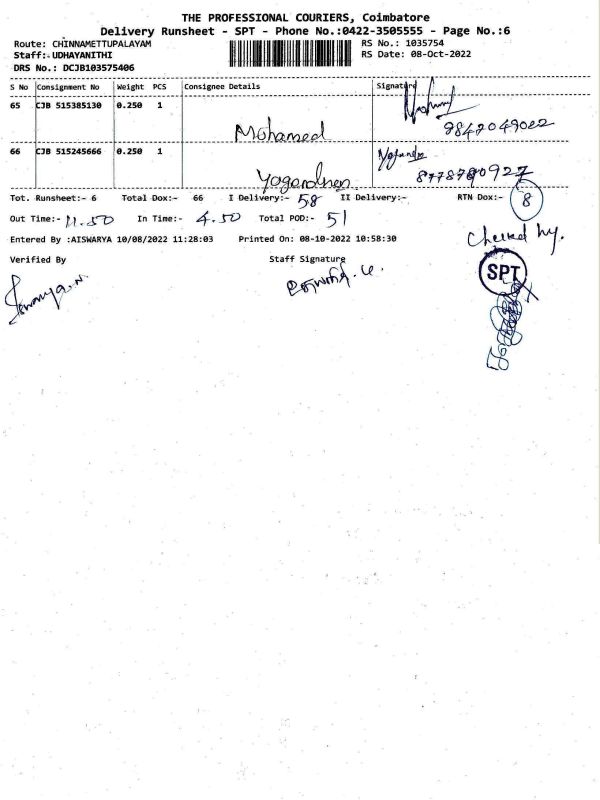 THE PROFESSIONAL COURIERS, Coimbatore
Delivery Runsheet - SPT - Phone No.:0422-3505555 - Page No.:6
Route: CHINNAMETTUPALAYAM RS No.: 1035754
Staff:-UDHAYANITHI RS Date: 08-Oct-2022
DRS No.: DCJB103575406
S No Consignment No Weight PCS Consignee Details Signature
65 CJB 515385130 0.250 1
Mohamed 9842049022
66 CJB 515245666 0.250 1
Yogendren 8778790927
Tot. Runsheet:- 6 Total Dox:- 66 I Delivery:- 58 II Delivery:- RTN Dox:- 8
Out Time:- 11.50 In Time:- 4.50 Total POD:- 51
Entered By :AISWARYA 10/08/2022 11:28:03 Printed On: 08-10-2022 10:58:30 Checked by.
Verified By Staff Signature
SPT